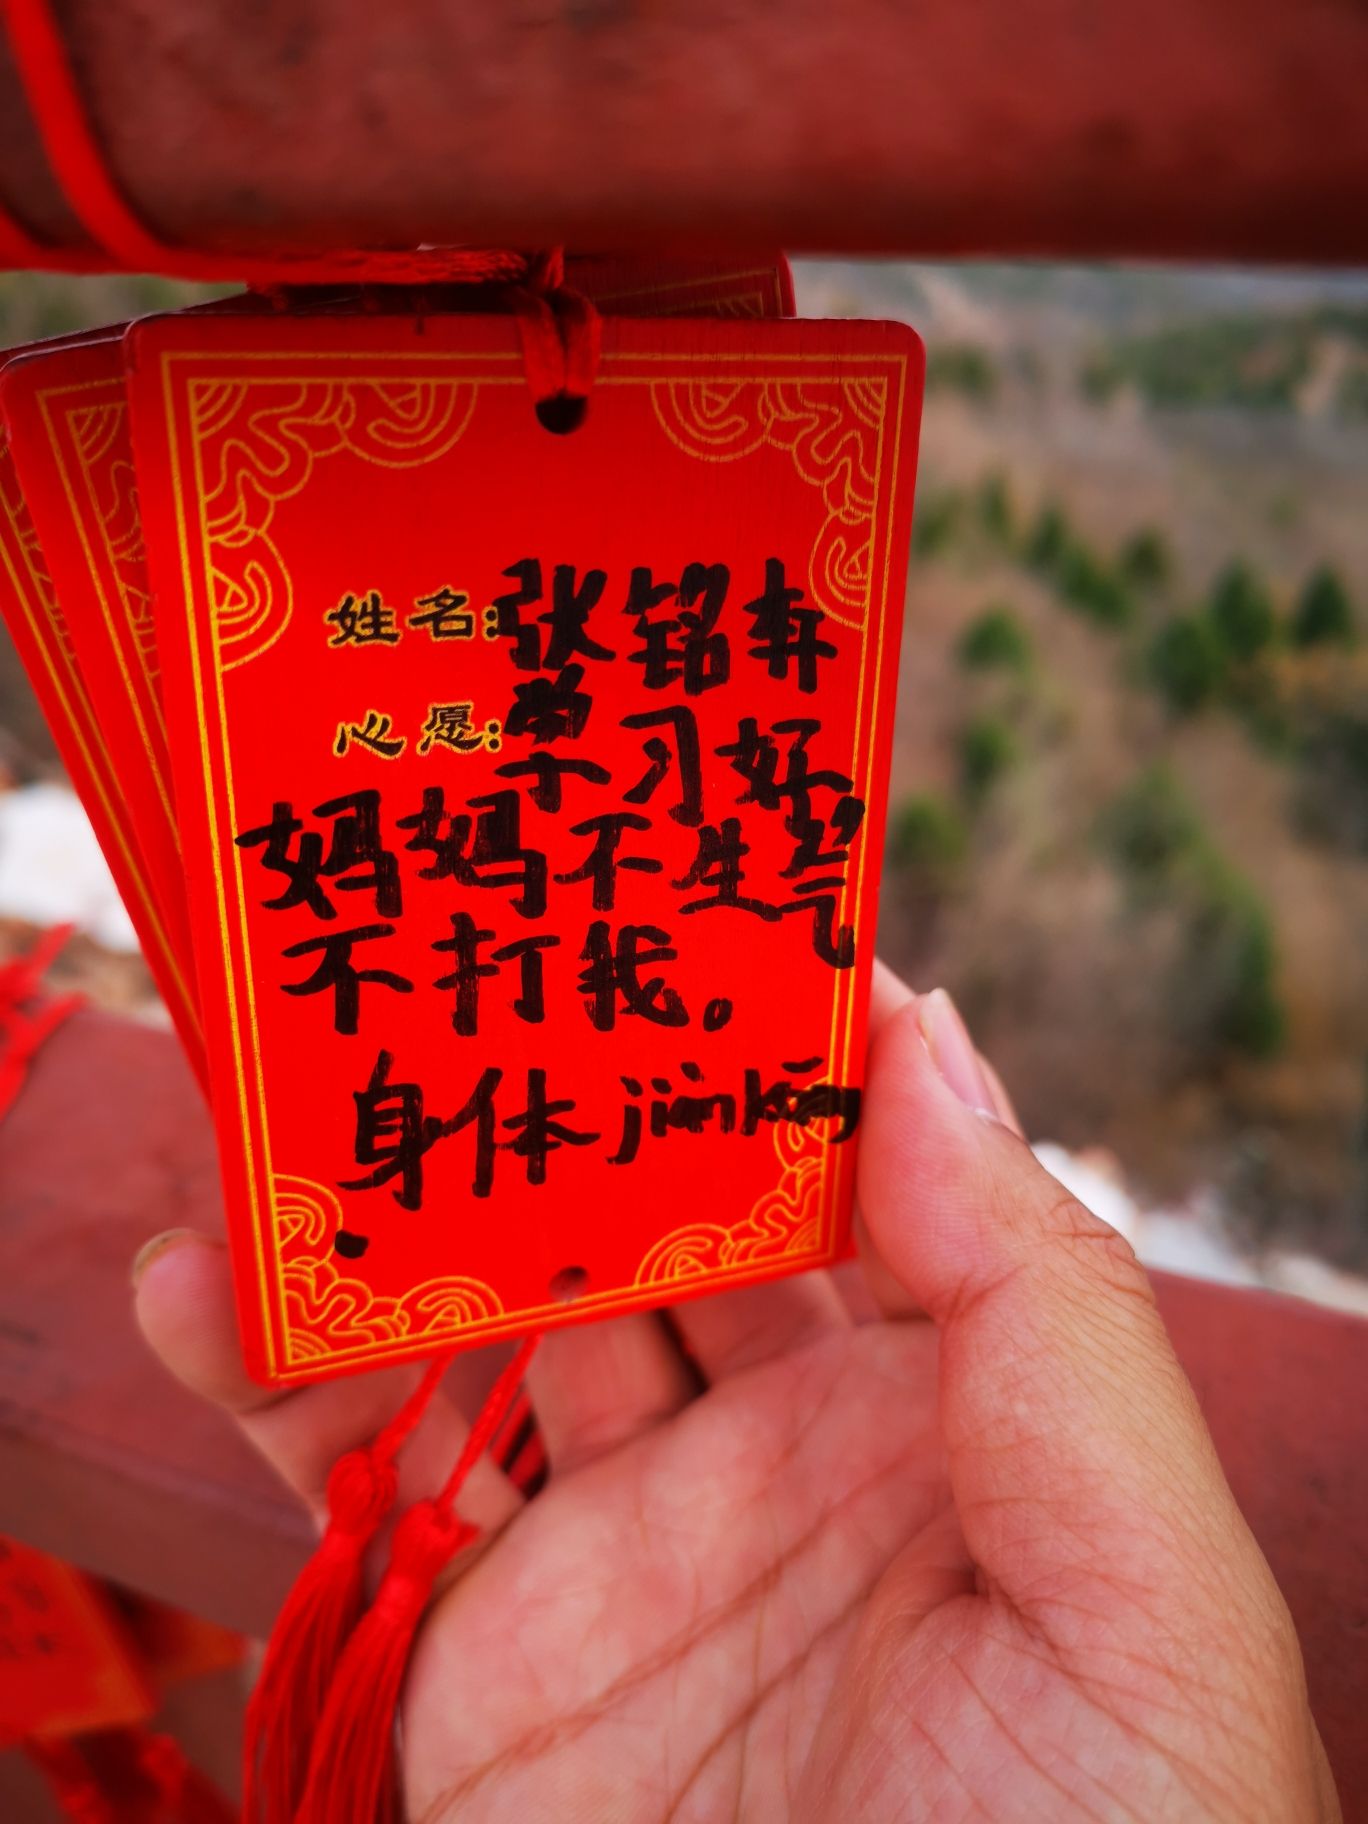 姓名:张铭奔
心愿:学习好
妈妈不生气
不打我。
身体jiànkāng
.